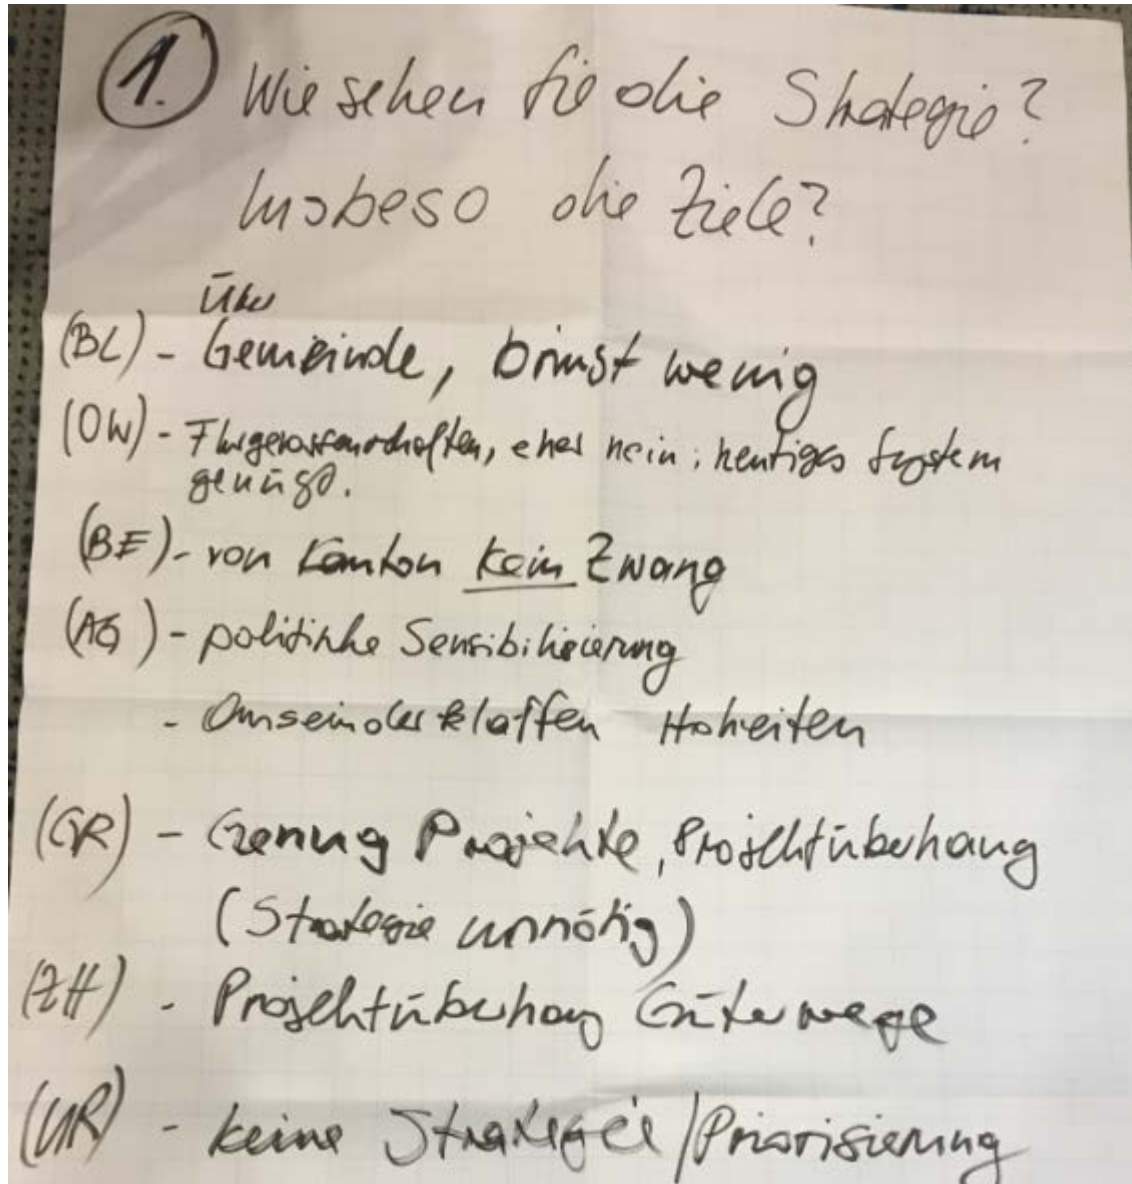 1. Wie sehen Sie die Strategie?
Insbeso die Ziele?
Über
(BL) - Gemeinde, bringt wenig
(OW) - Flurgenossenschaften, eher nein; heutiges System
genügt.
(BE) - von Kanton kein Zwang
(AG) - politische Sensibilisierung
- Auseinderklaffen Hoheiten
(GR) - Genug Projekte, Projektüberhang
(Strategie unnötig)
(ZH) - Projektüberhang Güterwege
(UR) - keine Strategie / Priorisierung